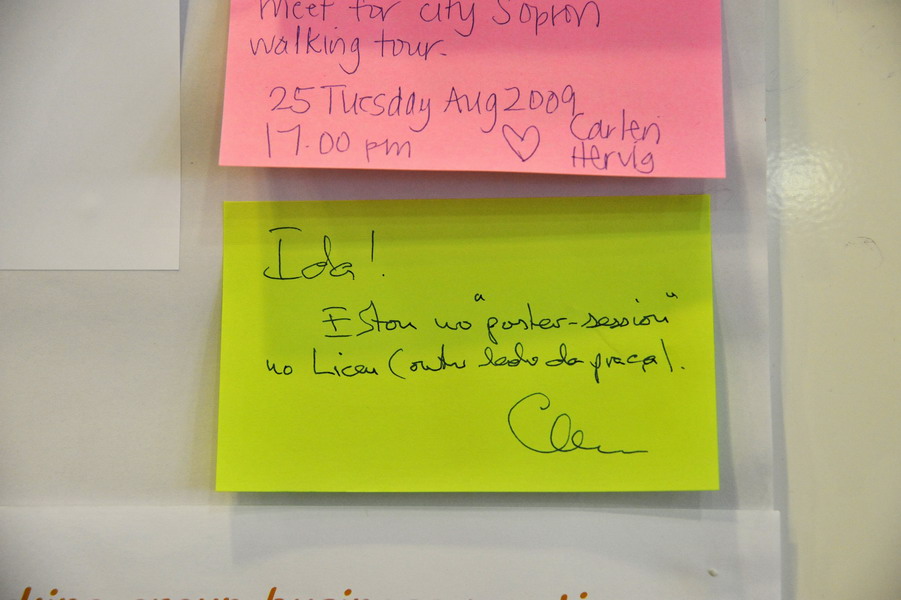 meet for city Sopron
walking tour.
25 Tuesday Aug 2009
17.00 pm
Carlen
Hervig
Ida!
Estou no "poster-session"
no Liceu (outro lado da praça).